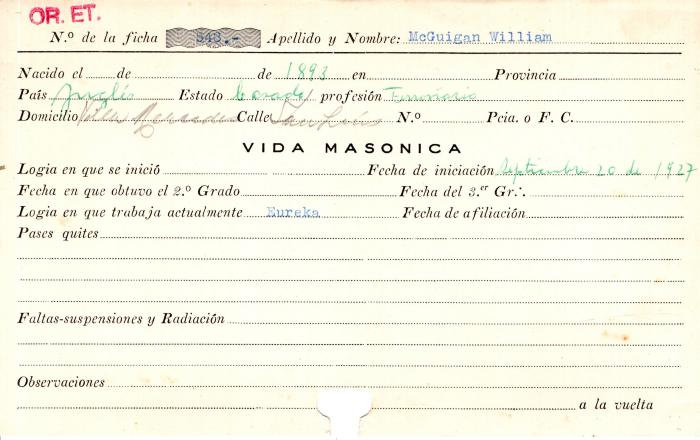 OR. ET.
N.º de la ficha 548.- Apellido y Nombre: McGuigan William
Nacido el de de 1893 en Provincia
País Inglés Estado Casado profesión Ferroviario
Domicilio Villa Mercedes Calle San Luis N.º Pcia. o F. C.
VIDA MASONICA
Logia en que se inició Fecha de iniciación Septiembre 20 de 1927
Fecha en que obtuvo el 2.º Grado Fecha del 3.er Gr∴
Logia en que trabaja actualmente Eureka Fecha de afiliación
Pases quites
Faltas-suspensiones y Radiación
Observaciones
a la vuelta